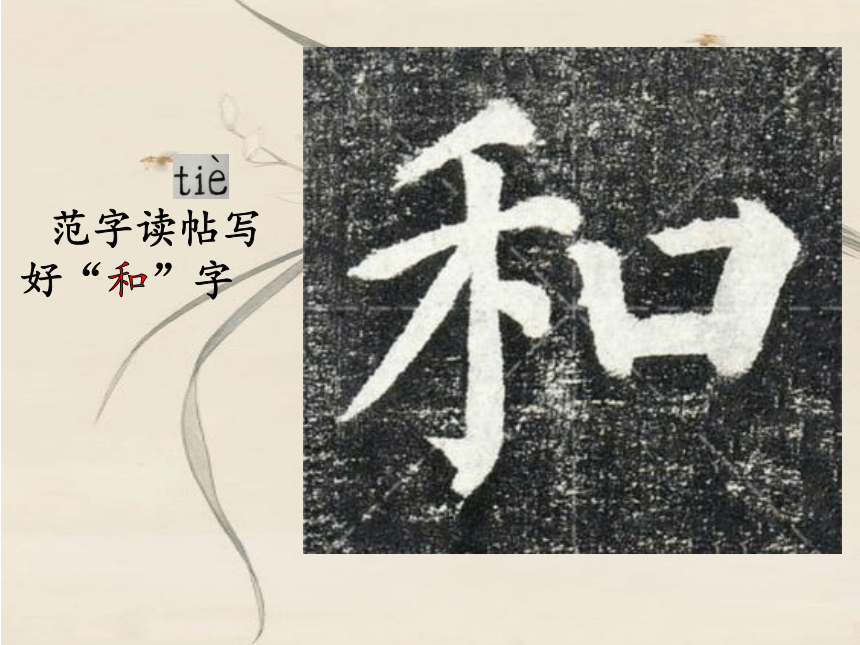 tiè
范字读帖写
好“和”字
和